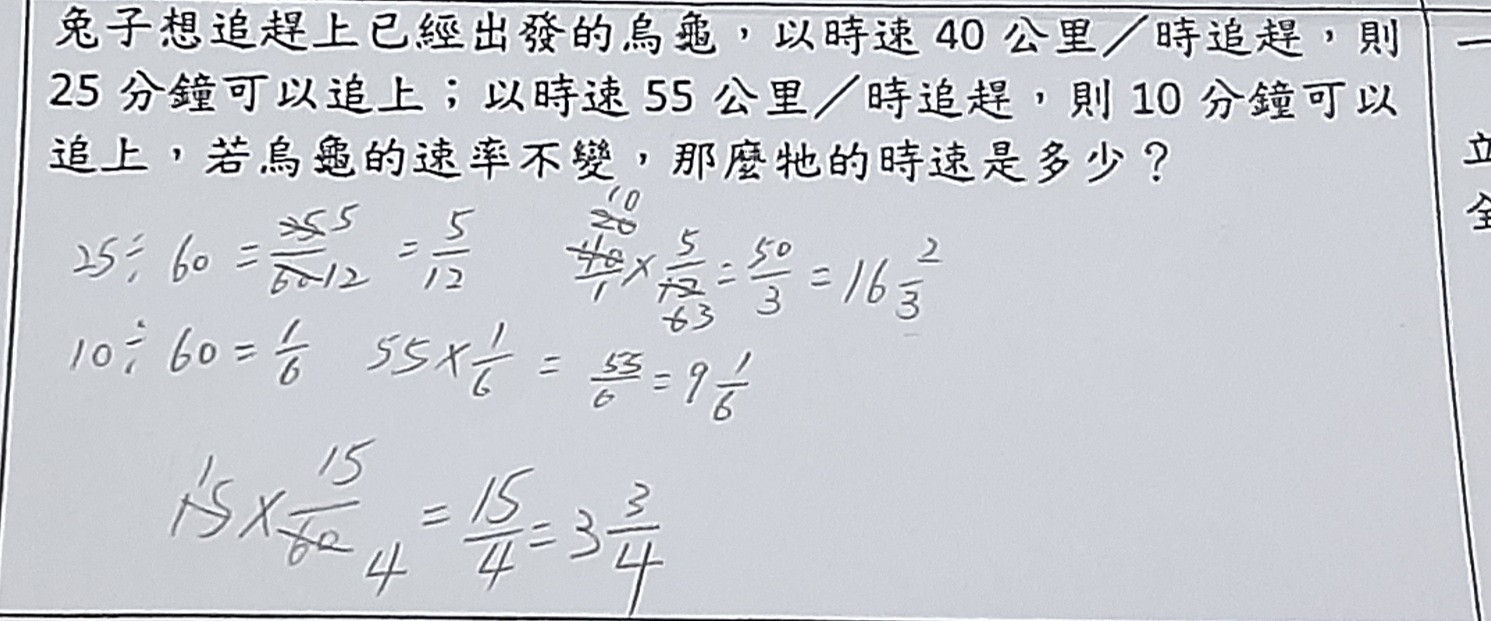 兔子想追趕上已經出發的烏龜，以時速 40 公里／時追趕，則
25 分鐘可以追上；以時速 55 公里／時追趕，則 10 分鐘可以
追上，若烏龜的速率不變，那麼牠的時速是多少？
25÷60=25/60 5/12=5/12 40/1×5/12=50/3=16 2/3
20 10 6 3
10÷60=1/6 55×1/6=55/6=9 1/6
15×15/60=15/4=3 3/4
1 4